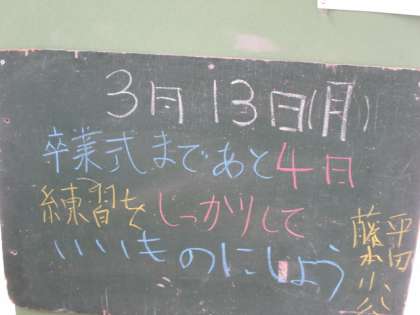 3月13日(月)
卒業式まであと4日
練習をしっかりして
いいものにしよう
平田
藤本小谷